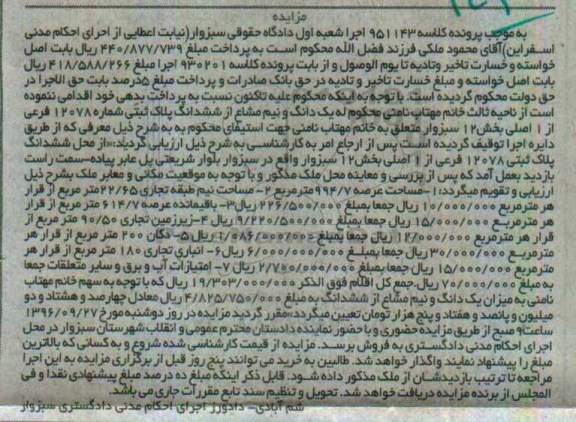 مزایده
به موجب پرونده کلاسه ۹۵۱۱۴۳ اجرا شعبه اول دادگاه حقوقی سبزوار(نیابت اعطایی از اجرای احکام مدنی
اسفراین)آقای محمود ملکی فرزند فضل الله محکوم است به پرداخت مبلغ ۴۴۰/۸۷۷/۷۳۹ ریال بابت اصل
خواسته و خسارت تاخیر وتادیه تا یوم الوصول و از بابت پرونده کلاسه ۹۳۰۲۰۱ اجرا مبلغ ۴۱۸/۵۸۸/۲۶۶ ریال
بابت اصل خواسته و مبلغ خسارت تاخیر و تادیه در حق بانک صادرات و پرداخت مبلغ ۵درصد بابت حق الاجرا در
حق دولت محکوم گردیده است. با توجه به اینکه محکوم علیه تاکنون نسبت به پرداخت بدهی خود اقدامی ننموده
است از ناحیه ثالث خانم مهتاب نامنی محکوم له یک دانگ و نیم مشاع از ششدانگ پلاک ثبتی شماره ۱۲۰۷۸ فرعی
از ۱ اصلی بخش۱۲ سبزوار متعلق به خانم مهتاب نامنی جهت استیفای محکوم به به شرح ذیل معرفی که از طریق
دایره اجرا توقیف گردیده است پس از ارجاع امر به کارشناسی به شرح ذیل ارزیابی گردید:«از محل ششدانگ
پلاک ثبتی ۱۲۰۷۸ فرعی از ۱ اصلی بخش۱۲ سبزوار واقع در سبزوار بلوار شریعتی پل عابر پیاده-سمت راست
بازدید بعمل آمد که پس از بررسی و معاینه محل ملک مذکور و با توجه به موقعیت مکانی و معابر ملک بشرح ذیل
ارزیابی و تقویم میگردد:۱-مساحت عرصه ۹۹۴/۷مترمربع ۲-مساحت نیم طبقه تجاری ۲۲/۶۵متر مربع از قرار
هر مترمربع ۱۰/۰۰۰/۰۰۰ ریال جمعا بمبلغ ۲۲۶/۵۰۰/۰۰۰ ریال۳- باقیمانده عرصه ۶۱۴/۷متر مربع از قرار
هر مترمربع ۱۵/۰۰۰/۰۰۰ ریال جمعا بمبلغ ۹/۲۲۰/۵۰۰/۰۰۰ ریال ۴-زیرزمین تجاری ۹۰/۵۰ متر مربع از
قرار هر مترمربع ۱۲/۰۰۰/۰۰۰ ریال جمعا بمبلغ ۱/۰۸۶/۰۰۰/۰۰۰ ریال ۵- دکان ۲۰۰ متر مربع از قرار هر
مترمربع ۳۰/۰۰۰/۰۰۰ ریال جمعا بمبلغ ۶/۰۰۰/۰۰۰/۰۰۰ ریال ۶- انباری تجاری ۱۸۰ متر مربع از قرار هر
مترمربع ۱۵/۰۰۰/۰۰۰ ریال جمعا بمبلغ ۲/۷۰۰/۰۰۰/۰۰۰ ریال ۷- امتیازات آب و برق و سایر متعلقات جمعا
به مبلغ ۷۰/۰۰۰/۰۰۰ ریال.جمع کل اقلام فوق الذکر ۱۹/۳۰۳/۰۰۰/۰۰۰ ریال که با توجه به سهم خانم مهتاب
نامنی به میزان یک دانگ و نیم مشاع از ششدانگ به مبلغ ۴/۸۲۵/۷۵۰/۰۰۰ ریال معادل چهارصد و هشتاد و دو
میلیون و پانصد و هفتاد و پنج هزار تومان تعیین میگردد»مقرر گردید مزایده در روز دوشنبه مورخ ۱۳۹۶/۰۹/۲۷
ساعت۹ صبح از طریق مزایده حضوری و با حضور نماینده دادستان محترم عمومی و انقلاب شهرستان سبزوار در محل
اجرای احکام مدنی دادگستری به فروش برسد. مزایده از قیمت کارشناسی شده شروع و به کسانی که بالاترین
مبلغ را پیشنهاد نمایند واگذار خواهد شد. طالبین به خرید می توانند پنج روز قبل از برگزاری مزایده به این اجرا
مراجعه تا ترتیب بازدیدشان از ملک مذکور داده شود. قابل ذکر اینکه مبلغ ده درصد مبلغ پیشنهادی نقدا و فی
المجلس از برنده مزایده دریافت خواهد شد. تحویل و تنظیم سند تابع مقررات جاری می باشد.
شم آبادی- دادورز اجرای احکام مدنی دادگستری سبزوار